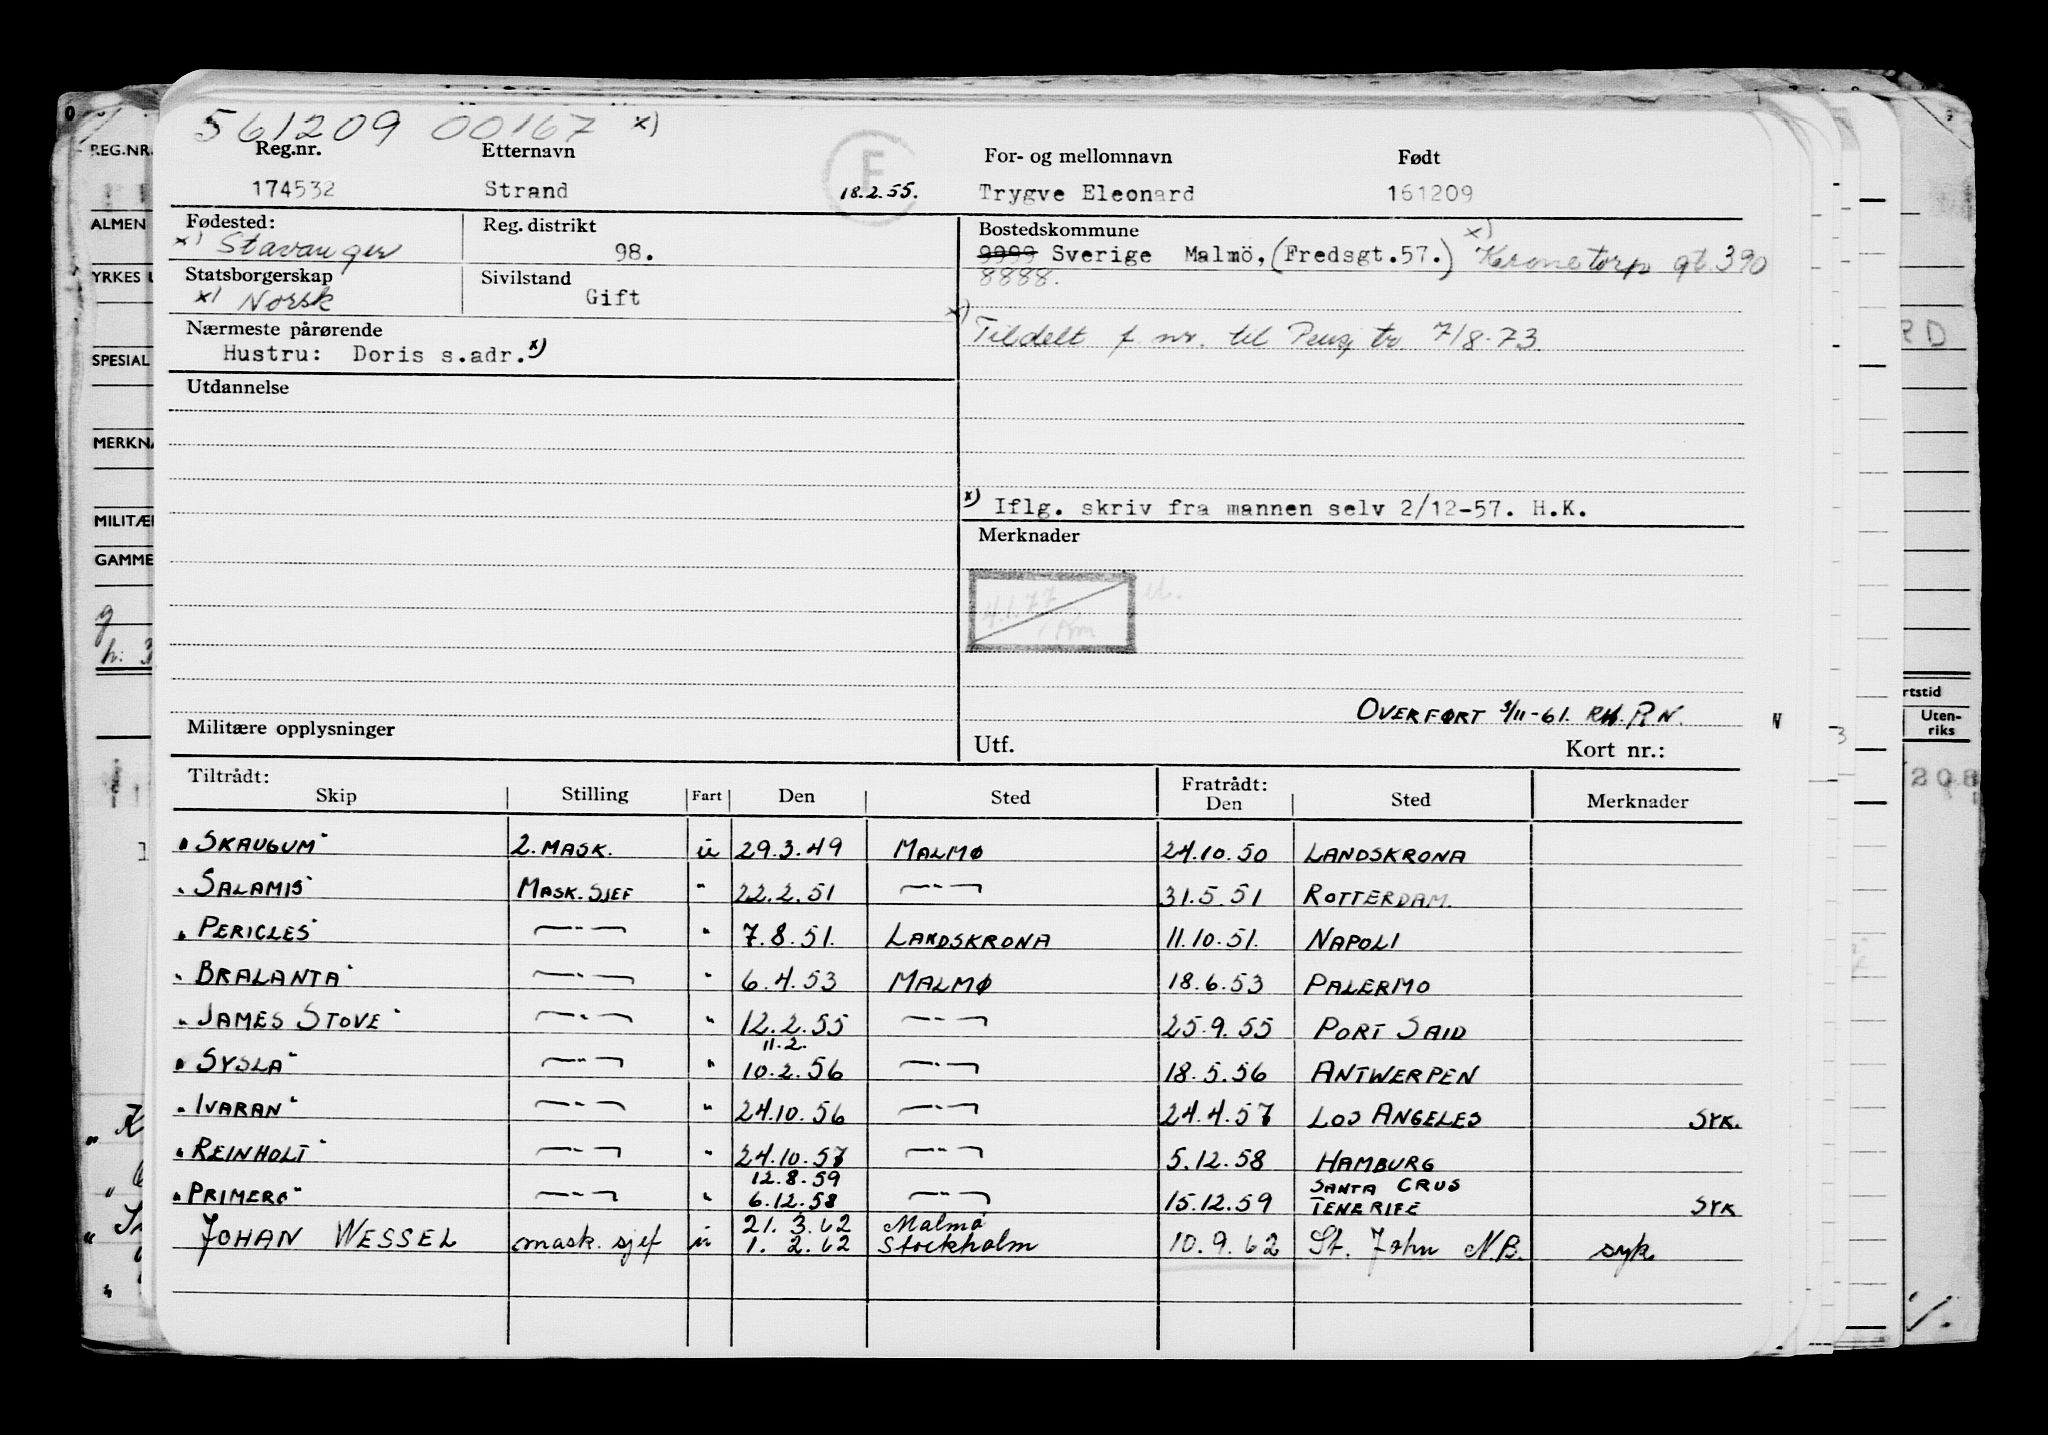 561209 00167 x)
Reg.nr. Etternavn F For- og mellomnavn Født
174532 Strand 18.2.55. Trygve Eleonard 161209
Fødested: Reg. distrikt Bostedskommune
x) Stavanger 98. 9999 Sverige Malmö, (Fredsgt.57.) x) Kronetorp gt. 390
8888.
Statsborgerskap Sivilstand
x) Norsk Gift
Nærmeste pårørende
Hustru: Doris s.adr. x)
x) Tildelt f. nr. til Pensj tr. 7/8-73.
Utdannelse
x) Iflg. skriv fra mannen selv 2/12-57. H.K.
Merknader
4.1.77
Km
OVERFØRT 3/11-61. RH. P.N.
Militære opplysninger Utf. Kort nr.:
Tiltrådt: Fratrådt:
Skip Stilling Fart Den Sted Den Sted Merknader
"SKAUGUM" 2. MASK. u 29.3.49 MALMØ 24.10.50 LANDSKRONA
"SALAMIS" MASK. SJEF " 22.2.51 —"— 31.5.51 ROTTERDAM.
"PERICLES" —"— " 7.8.51. LANDSKRONA 11.10.51. NAPOLI
"BRALANTA" —"— " 6.4.53 MALMØ 18.6.53 PALERMO
"JAMES STOVE" —"— " 12.2.55 —"— 25.9.55 PORT SAID
11.2.
"SYSLA" —"— " 10.2.56 —"— 18.5.56 ANTWERPEN
"IVARAN" —"— " 24.10.56 —"— 24.4.57 LOS ANGELES SYK.
"REINHOLT" —"— " 24.10.57 —"— 5.12.58 HAMBURG
12.8.59 SANTA CRUS
"PRIMERO" —"— " 6.12.58 —"— 15.12.59 TENERIFE SYK
21. 3. 62 Malmö
JOHAN WESSEL mask. sjef u 1. 2. 62 Stockholm 10. 9. 62 St. John N.B. syk
REG.NR.
ALMEN
YRKES U
SPESIAL
MERKNA
MILITÆR
GAMME
RD
rtstid
Uten-
riks
208